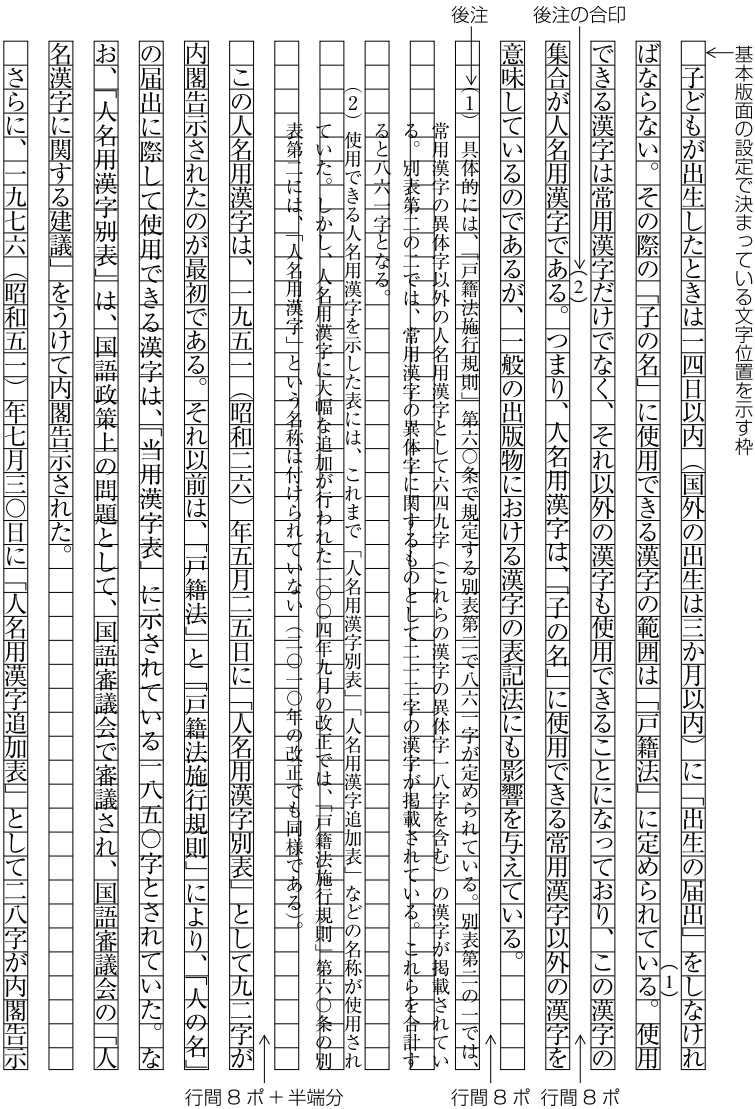 後注
後注の合印
基本版面の設定で決まっている文字位置を示す枠
子どもが出生したときは一四日以内（国外の出生は三か月以内）に「出生の届出」をしなけれ
ばならない。その際の「子の名」に使用できる漢字の範囲は「戸籍法」に定められている。使用
（1）
できる漢字は常用漢字だけでなく、それ以外の漢字も使用できることになっており、この漢字の
集合が人名用漢字である。つまり、人名用漢字は、「子の名」に使用できる常用漢字以外の漢字を
（2）
意味しているのであるが、一般の出版物における漢字の表記法にも影響を与えている。
（1）　具体的には、「戸籍法施行規則」第六〇条で規定する別表第二で八六一字が定められている。別表第二の一では、
常用漢字の異体字以外の人名用漢字として六四九字（これらの漢字の異体字一八字を含む）の漢字が掲載されてい
る。別表第二の二では、常用漢字の異体字に関するものとして二一二字の漢字が掲載されている。これらを合計す
ると八六一字となる。
（2）　使用できる人名用漢字を示した表には、これまで「人名用漢字別表」「人名用漢字追加表」などの名称が使用され
ていた。しかし、人名用漢字に大幅な追加が行われた二〇〇四年九月の改正では、「戸籍法施行規則」第六〇条の別
表第二には、「人名用漢字」という名称は付けられていない（二〇一〇年の改正でも同様である）。
この人名用漢字は、一九五一（昭和二六）年五月二五日に「人名用漢字別表」として九二字が
内閣告示されたのが最初である。それ以前は、「戸籍法」と「戸籍法施行規則」により、「人の名」
の届出に際して使用できる漢字は、「当用漢字表」に示されている一八五〇字とされていた。な
お、「人名用漢字別表」は、国語政策上の問題として、国語審議会で審議され、国語審議会の「人
名漢字に関する建議」をうけて内閣告示された。
さらに、一九七六（昭和五一）年七月三〇日に「人名用漢字追加表」として二八字が内閣告示
行間 8 ポ + 半端分
行間 8 ポ
行間 8 ポ